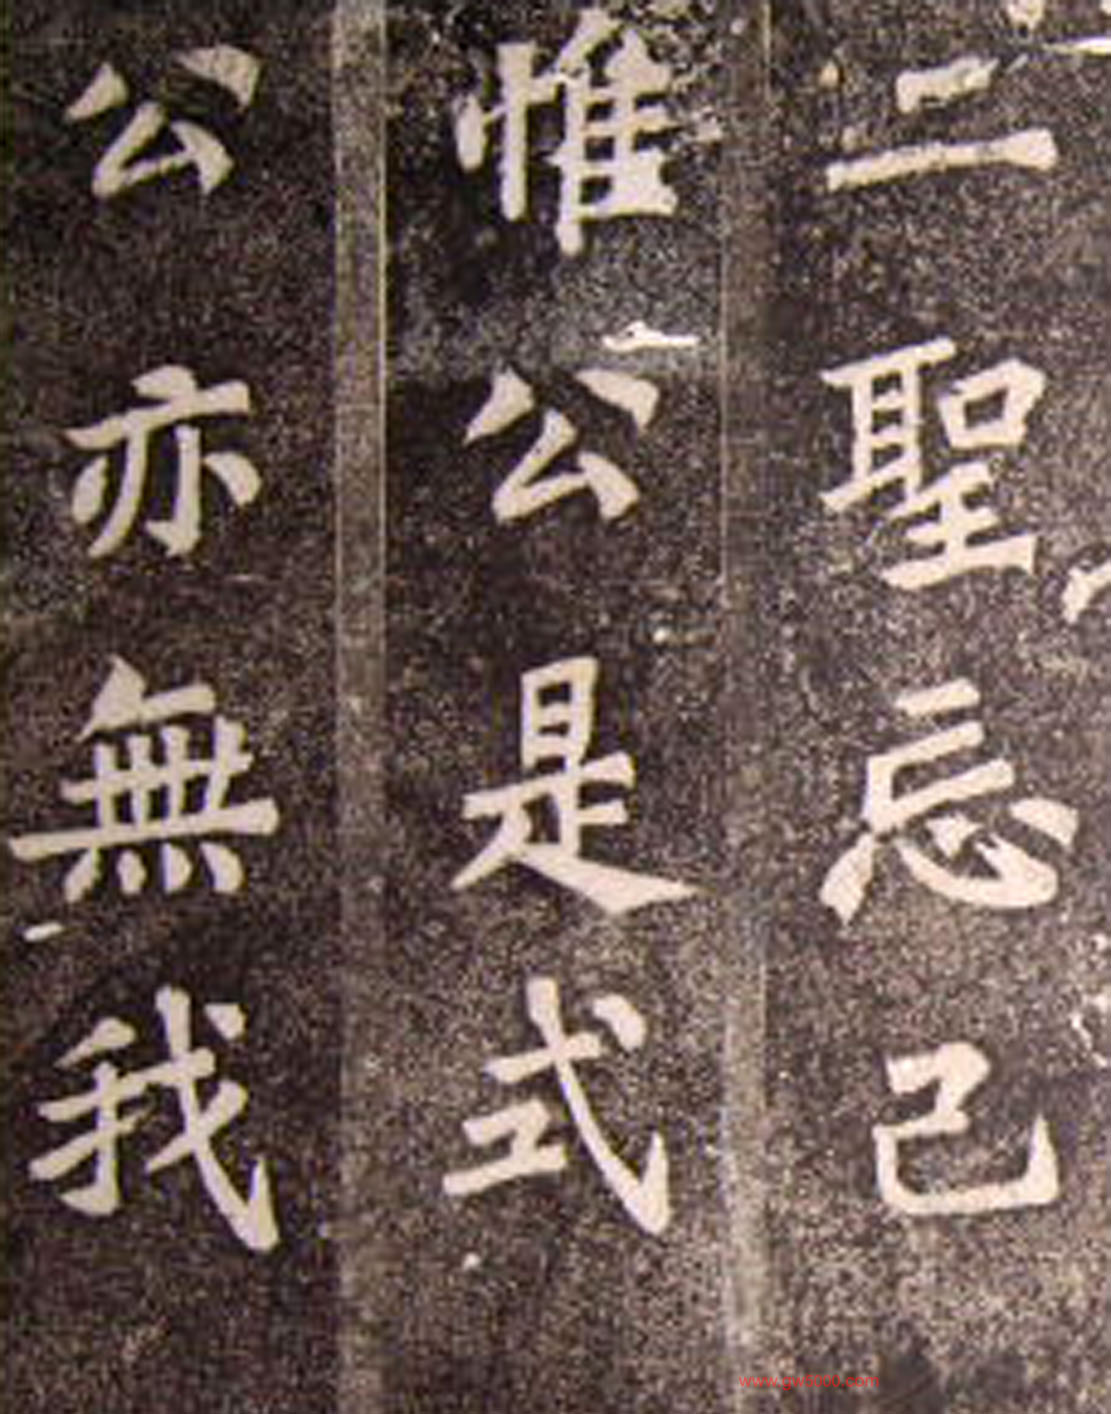 二聖忘己
惟公是式
公亦無我